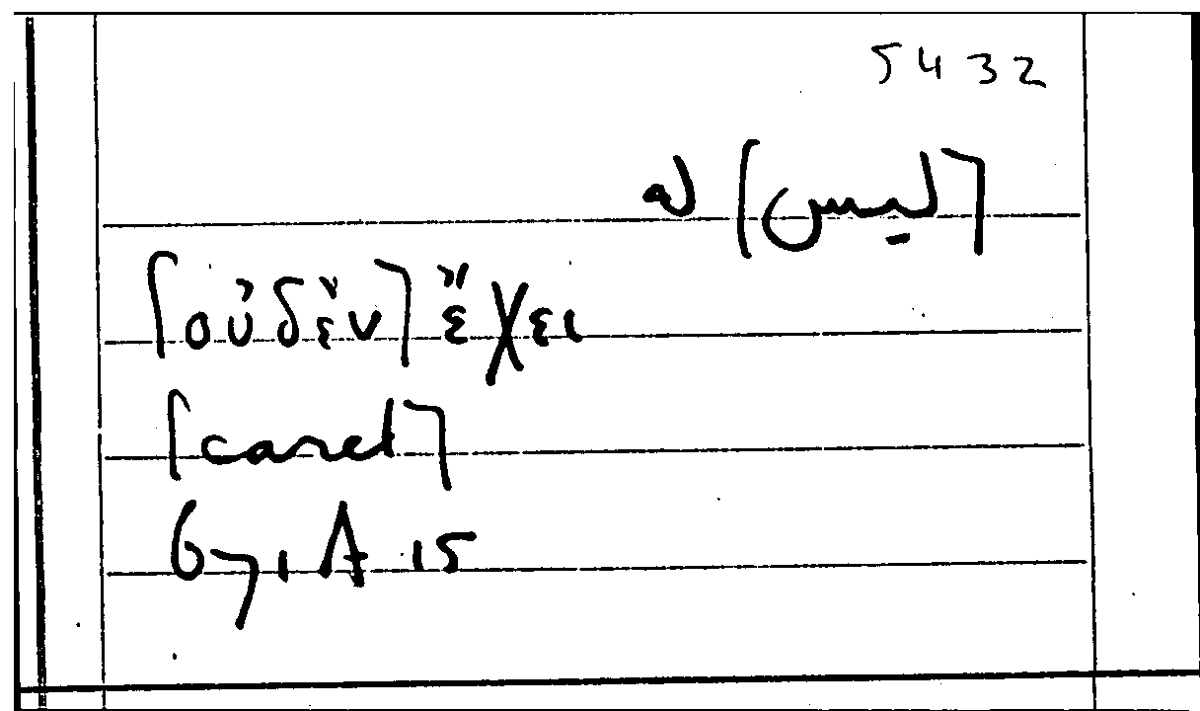 5432
⌈ليس⌉ له
⌈οὐδὲν⌉ ἔχει
⌈caret⌉
671 A 15